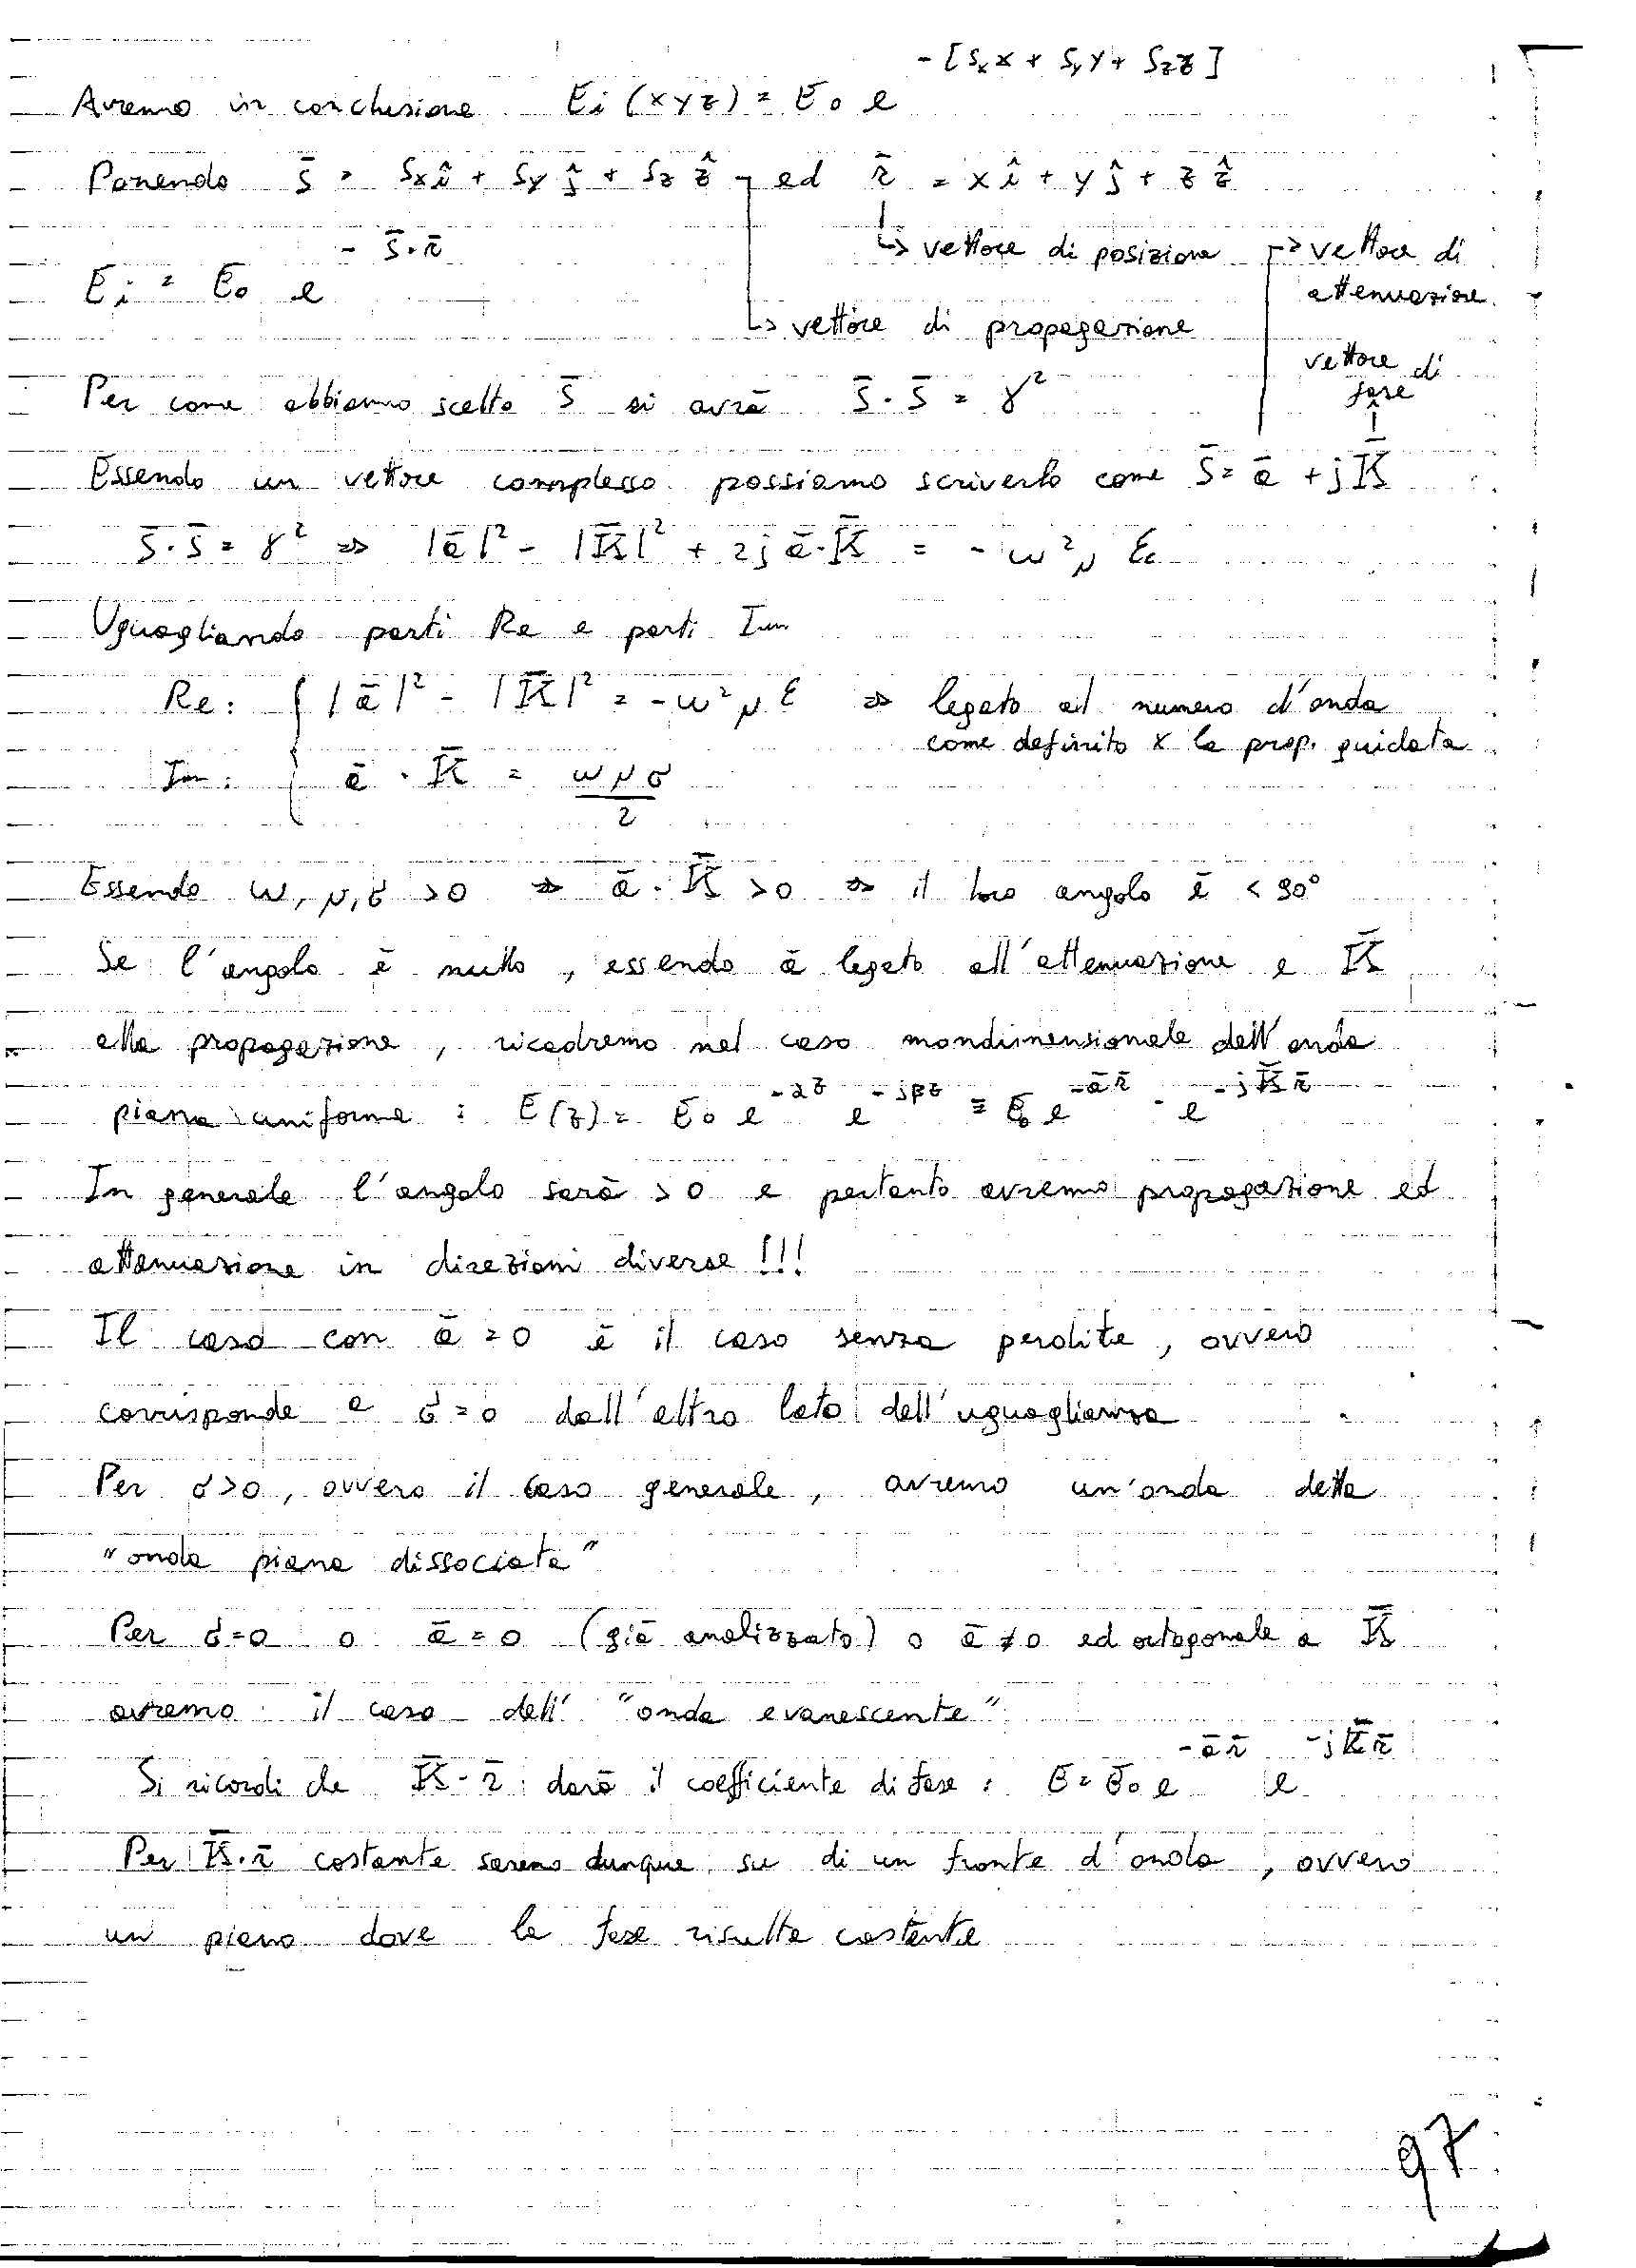 Avremo in conclusione Ei (xyz) = E0 e^-[Sx x + Sy y + Sz z]
Ponendo s̄ = Sx î + Sy ĵ + Sz ẑ ed r̄ = x î + y ĵ + z ẑ
↳ vettore di posizione
↳ vettore di propagazione
→ vettore di attenuazione
Ei = E0 e^-s̄·r̄
vettore di fase
Per come abbiamo scelto s̄ si avrà s̄·s̄ = γ²
Essendo un vettore complesso possiamo scriverlo come s̄ = ā + jK̄
s̄·s̄ = γ² ⇒ |ā|² - |K̄|² + 2j ā·K̄ = - ω²μ εc
Uguagliando parti Re e parti Im
Re: { |ā|² - |K̄|² = -ω²με ⇒ legato al numero d'onda
come definito x la prop. guidata
Im: { ā · K̄ = ωμσ/2
Essendo ω, μ, σ >0 ⇒ ā·K̄ >0 ⇒ il loro angolo è < 90°
Se l'angolo è nullo, essendo ā legato all'attenuazione e K̄
alla propagazione, ricadremo nel caso mondimensionale dell'onda
piana uniforme: E(z) = E0 e^-αz e^-jβz ≡ E0 e^-ā r̄ · e^-jK̄ r̄
In generale l'angolo sarà >0 e pertanto avremo propagazione ed
attenuazione in direzioni diverse!!!
Il caso con ā = 0 è il caso senza perdite, ovvero
corrisponde a σ=0 dall'altro lato dell'uguaglianza
Per σ>0, ovvero il caso generale, avremo un'onda detta
"onda piana dissociata"
Per σ=0 o ā=0 (già analizzato) o ā≠0 ed ortogonale a K̄
avremo il caso dell' "onda evanescente"
Si ricordi che K̄·r̄ darà il coefficiente di fase: E = E0 e^-ā r̄ e^-jK̄ r̄
Per K̄·r̄ costante saremo dunque su di un fronte d'onda, ovvero
un piano dove la fase risulta costante
97